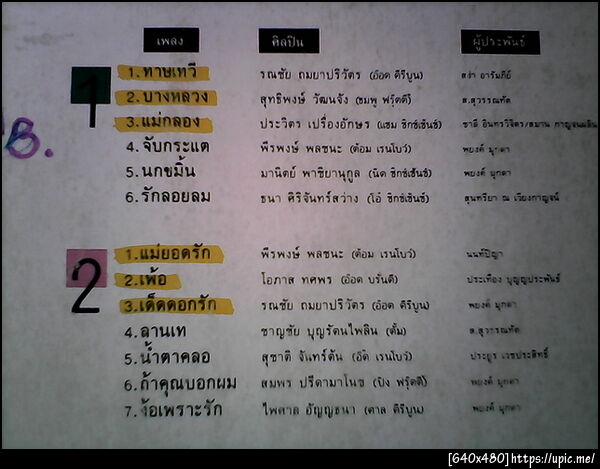 เพลง ศิลปิน ผู้ประพันธ์
1
1. ทาษเทวี รณชัย ถมยาปริวัตร (อ๊อด คีรีบูน) สง่า อารัมภีย์
2. บางหลวง สุทธิพงษ์ วัฒนจัง (ชมพู ฟรุ๊ตตี้) ส.สุวรรณทัต
B. 3. แม่กลอง ประวิตร เปรื่องอักษร (แซม ซิกซ์เซ้นซ์) ชาลี อินทรวิจิตร/สมาน กาญจนผลิน
4. จับกระแต พีรพงษ์ พลชนะ (ต้อม เรนโบว์) พยงค์ มุกดา
5. นกขมิ้น มานิตย์ พาชิยานุกูล (นิด ซิกซ์เซ้นซ์) พยงค์ มุกดา
6. รักลอยลม ธนา ศิริจันทร์สว่าง (โอ๋ ซิกซ์เซ้นซ์) สุนทรียา ณ เวียงกาญจน์
2
1. แม่ยอดรัก พีรพงษ์ พลชนะ (ต้อม เรนโบว์)
2. เพ้อ โอภาส ทศพร (อ๊อด บรั่นดี) ประเทือง บุญญประพันธ์
3. เด็ดดอกรัก รณชัย ถมยาปริวัตร (อ๊อด คีรีบูน) พยงค์ มุกดา
4. ลานเท ชาญชัย บุญรัตนไพลิน (ตั้ม) ส.สุวรรณทัต
5. น้ำตาคลอ สุชาติ จันทร์ต้น (อ๊๊ด เรนโบว์) ประยูร เวชประสิทธิ์
6. ถ้าคุณบอกผม สมพร ปรีดามาโนช (ปิง ฟรุ๊ตตี้) พยงค์ มุกดา
7. ง้อเพราะรัก ไพศาล อัญญธนา (ศาล คีรีบูน) พยงค์ มุกดา
[640x480]https://upic.me/